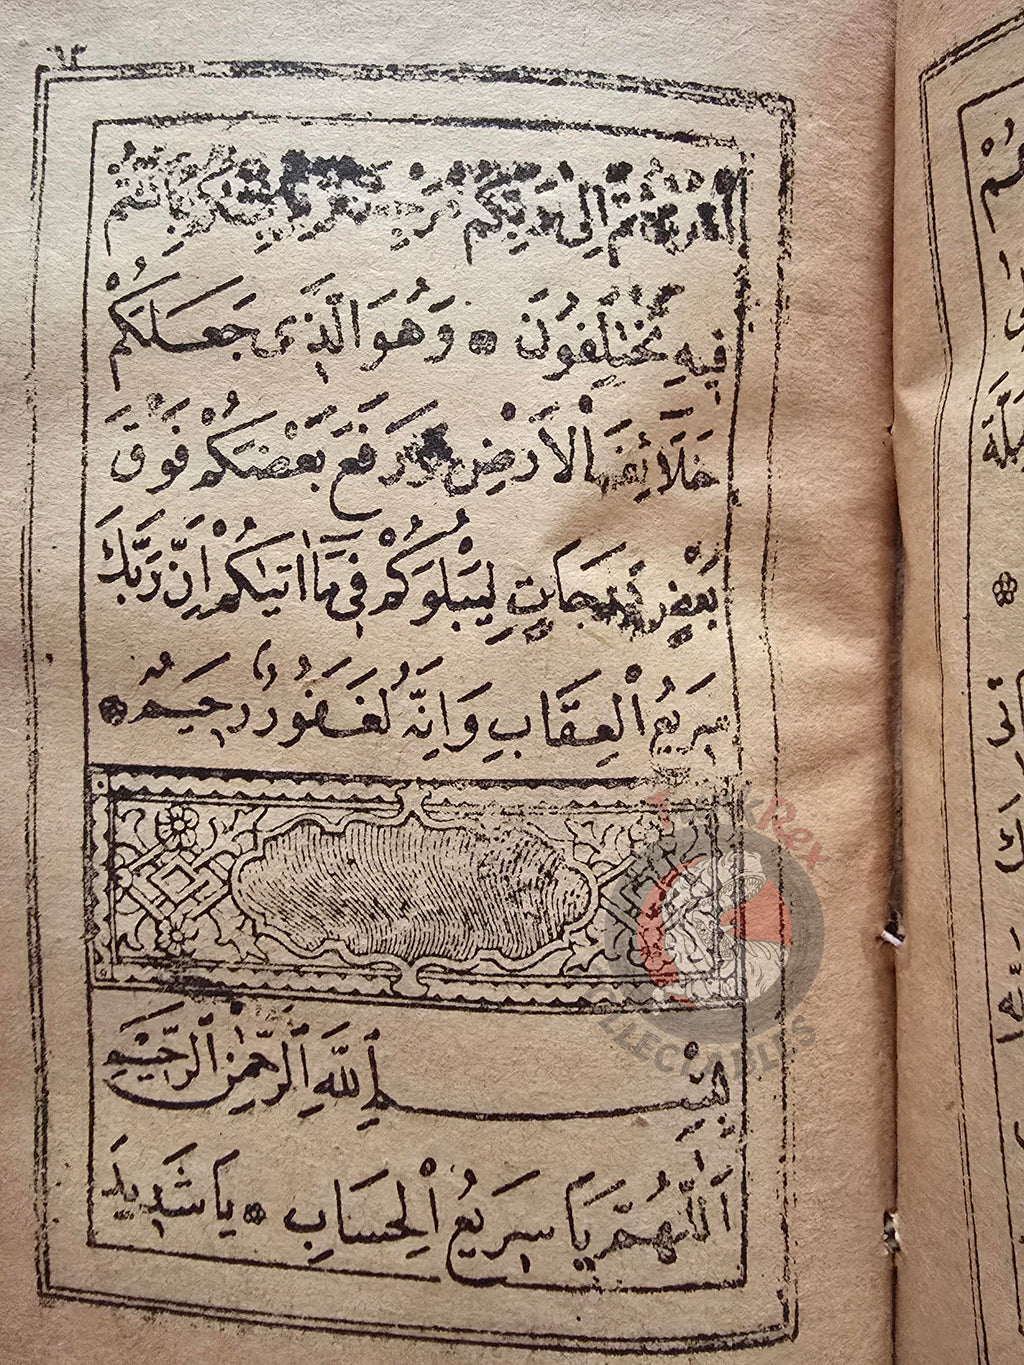 ٦٣
اُخْرٰى ثُمَّ اِلٰى رَبِّكُمْ مَرْجِعُكُمْ فَيُنَبِّئُكُمْ بِمَا كُنْتُمْ
فِيهِ تَخْتَلِفُونَ ۞ وَهُوَ الَّذِى جَعَلَكُمْ
خَلَائِفَ الْاَرْضِ وَرَفَعَ بَعْضَكُمْ فَوْقَ
بَعْضٍ دَرَجَاتٍ لِيَبْلُوَكُمْ فِى مَا اٰتٰيكُمْ اِنَّ رَبَّكَ
سَرِيعُ الْعِقَابِ وَاِنَّهُ لَغَفُورٌ رَحِيمٌ ۞
بِسْمِ اللّٰهِ الرَّحْمٰنِ الرَّحِيمِ
اَللّٰهُمَّ يَا سَرِيعُ الْحِسَابِ ۞ يَا شَدِيدَ